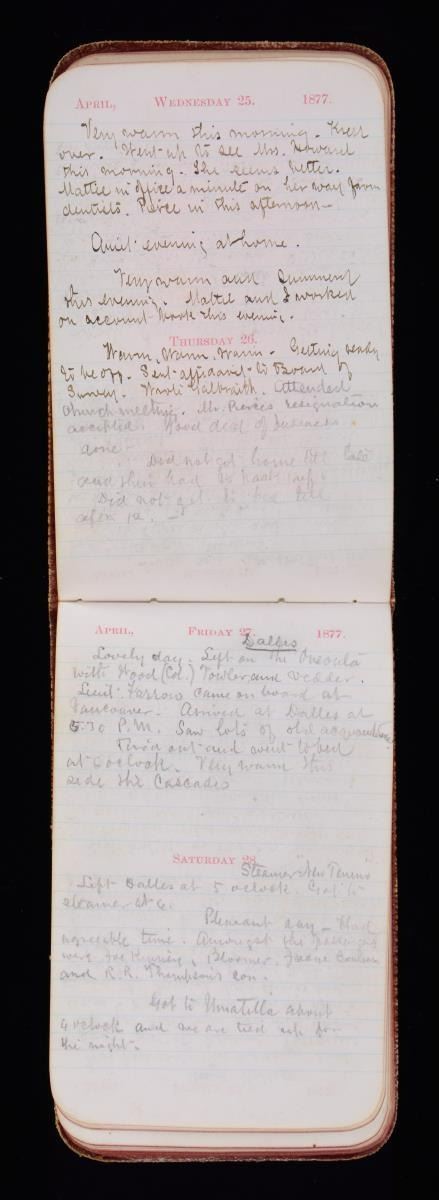 APRIL, WEDNESDAY 25. 1877.
Very warm this morning. Kress
over. Went up to see Mrs. Howard
this morning. She seems better.
Mattie in office a minute on her way from
dentists. Pierce in this afternoon—
Quiet evening at home.
Very warm and Summery
this evening. Mattie and I worked
on account book this evening.
THURSDAY 26.
Warm, Warm, Warm. Getting ready
to be off. Sent affidavit to Board of
Survey. Wrote Galbraith. Attended
church meeting. Mr. Pierce's resignation
accepted. Good deal of business
done.
Did not get home till late
and then had to pack up.
Did not get to bed till
after 12.
APRIL, FRIDAY 27. 1877.
Dalles
Lovely day. Left on the
with Wood (Col.) Fowler and Vedder.
Lieut. Farrow came on board at
Vancouver. Arrived at Dalles at
5.30 P.M. Saw lots of old acquaintances.
Tired out and went to bed
at 6 oclock. Very warm this
side the Cascades
SATURDAY 28.
Steamer "New Tenino"
Left Dalles at 5 oclock. Got to
steamer at 6.
Pleasant day— Had
agreeable time. Amongst the passengers
were Bloomer,
and R.R. Thompson's son.
Got to Umatilla about
oclock and we are tied up for
the night.